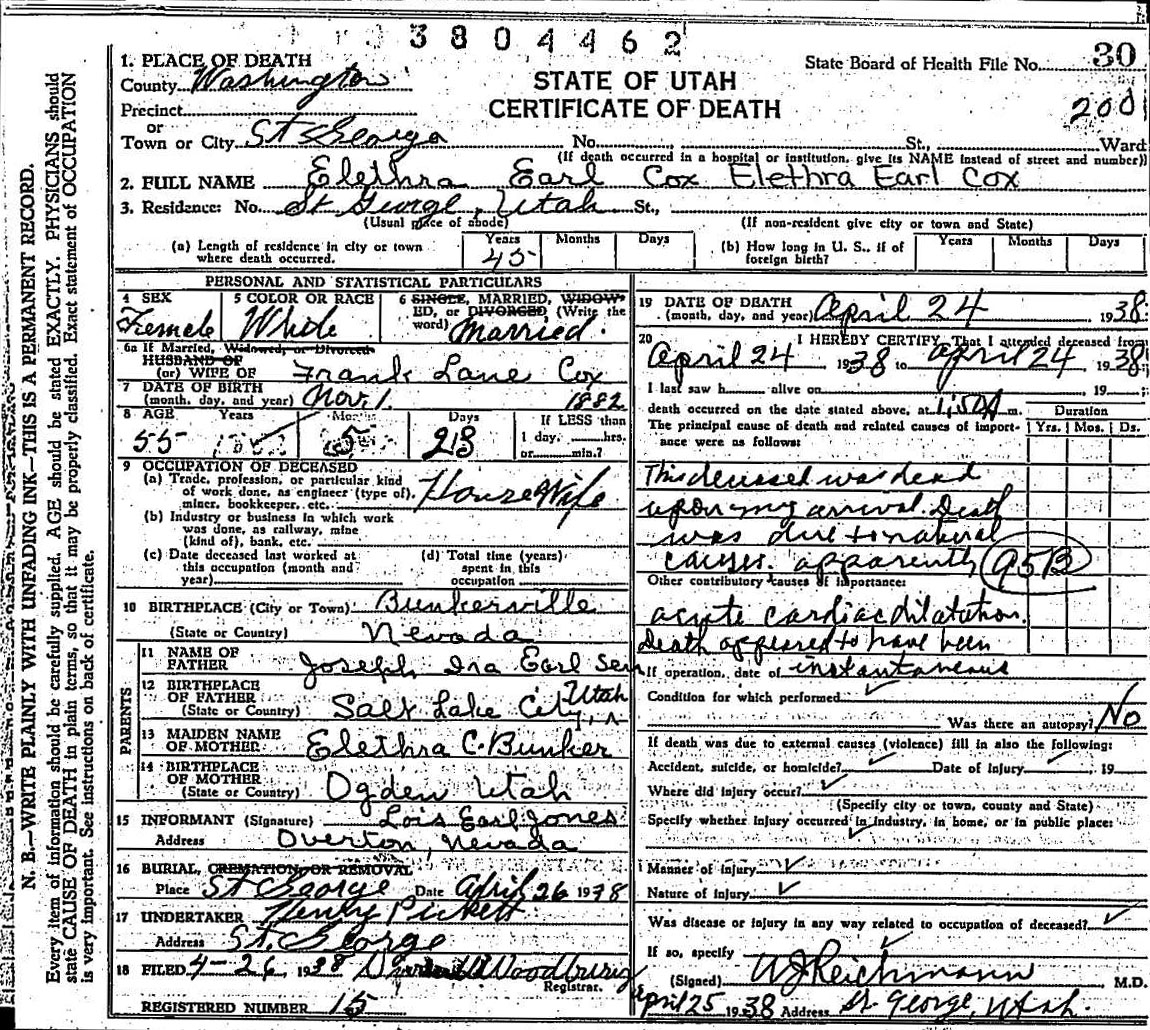 3804462
1. PLACE OF DEATH
County Washington
Precinct
or
Town or City St George No. St., Ward
State Board of Health File No. 30
STATE OF UTAH
CERTIFICATE OF DEATH
200
(If death occurred in a hospital or institution, give its NAME instead of street and number)
2. FULL NAME Elethra Earl Cox Elethra Earl Cox
3. Residence: No. St George, Utah St.,
(Usual place of abode) (If non-resident give city or town and State)
(a) Length of residence in city or town where death occurred. Years 45 Months Days
(b) How long in U. S., if of foreign birth? Years Months Days
PERSONAL AND STATISTICAL PARTICULARS
4 SEX
Female
5 COLOR OR RACE
White
6 SINGLE, MARRIED, WIDOW-
ED, or DIVORCED (Write the
word) Married.
6a If Married, Widowed, or Divorced
HUSBAND OF
(or) WIFE OF Frank Lane Cox
7 DATE OF BIRTH
(month, day, and year) Nov. 1. 1882
8 AGE Years Months Days If LESS than
55 5 23 1 day, hrs.
or min.?
9 OCCUPATION OF DECEASED
(a) Trade, profession, or particular kind
of work done, as engineer (type of), Housewife
miner, bookkeeper, etc.
(b) Industry or business in which work
was done, as railway, mine
(kind of), bank, etc.
(c) Date deceased last worked at
this occupation (month and
year)
(d) Total time (years)
spent in this
occupation
10 BIRTHPLACE (City or Town) Bunkerville
(State or Country) Nevada
PARENTS
11 NAME OF
FATHER Joseph Ira Earl Sen
12 BIRTHPLACE
OF FATHER
(State or Country) Salt Lake City, Utah
13 MAIDEN NAME
OF MOTHER Elethra C. Bunker
14 BIRTHPLACE
OF MOTHER
(State or Country) Ogden Utah
15 INFORMANT (Signature) Lois Earl Jones
Address Overton, Nevada
16 BURIAL, CREMATION OR REMOVAL
Place St George Date April 26 1938
17 UNDERTAKER Henry Pickett
Address St. George
18 FILED 4-26, 1938 Woodbury
Registrar.
REGISTERED NUMBER 15
19 DATE OF DEATH
(month, day, and year) April 24 1938
20 I HEREBY CERTIFY, That I attended deceased from
April 24 1938 to April 24 1938
I last saw h alive on , 19 ;
death occurred on the date stated above, at 1:50 A m.
The principal cause of death and related causes of import-
ance were as follows:
Duration
Yrs. Mos. Ds.
This deceased was dead
upon my arrival. Death
was due to natural
causes. apparently 95B
Other contributory causes of importance:
acute cardiac dilatation.
Death appeared to have been
If operation, date of instantaneous
Condition for which performed
Was there an autopsy? No
If death was due to external causes (violence) fill in also the following:
Accident, suicide, or homicide? Date of injury , 19
Where did injury occur?
(Specify city or town, county and State)
Specify whether injury occurred in industry, in home, or in public place:
Manner of injury
Nature of injury
Was disease or injury in any way related to occupation of deceased?
If so, specify
(Signed) W J Reichmann M.D.
April 25 1938 Address St. George, Utah.
N. B.—WRITE PLAINLY WITH UNFADING INK—THIS IS A PERMANENT RECORD.
Every item of information should be carefully supplied. AGE should be stated EXACTLY. PHYSICIANS should
state CAUSE OF DEATH in plain terms, so that it may be properly classified. Exact statement of OCCUPATION
is very important. See instructions on back of certificate.